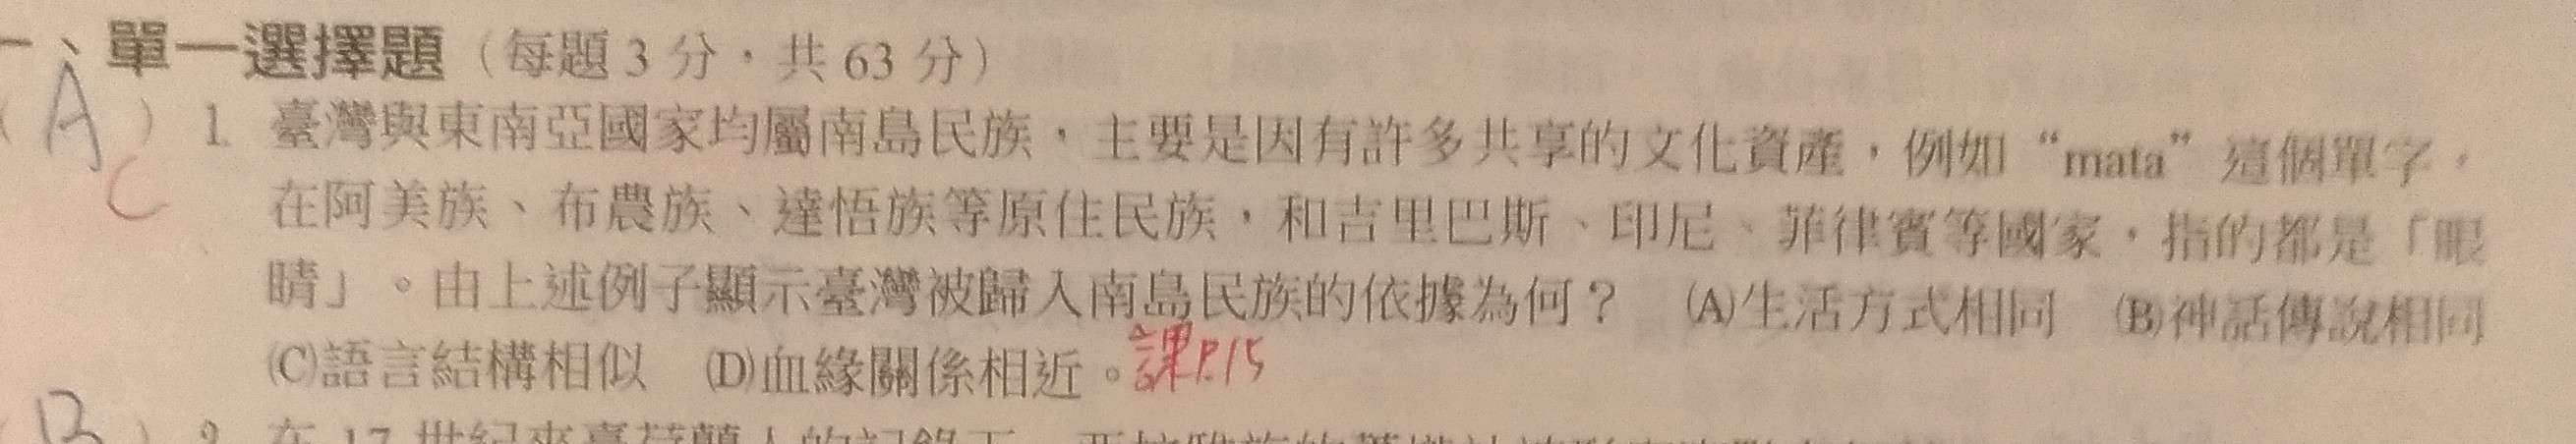 一、單一選擇題（每題 3 分，共 63 分）
（A）1. 臺灣與東南亞國家均屬南島民族，主要是因有許多共享的文化資產，例如“mata”這個單字，
C
在阿美族、布農族、達悟族等原住民族，和吉里巴斯、印尼、菲律賓等國家，指的都是「眼
睛」。由上述例子顯示臺灣被歸入南島民族的依據為何？ (A)生活方式相同 (B)神話傳說相同
(C)語言結構相似 (D)血緣關係相近。課P.15
B ）2. 在 17 世紀來臺荷蘭人的記錄